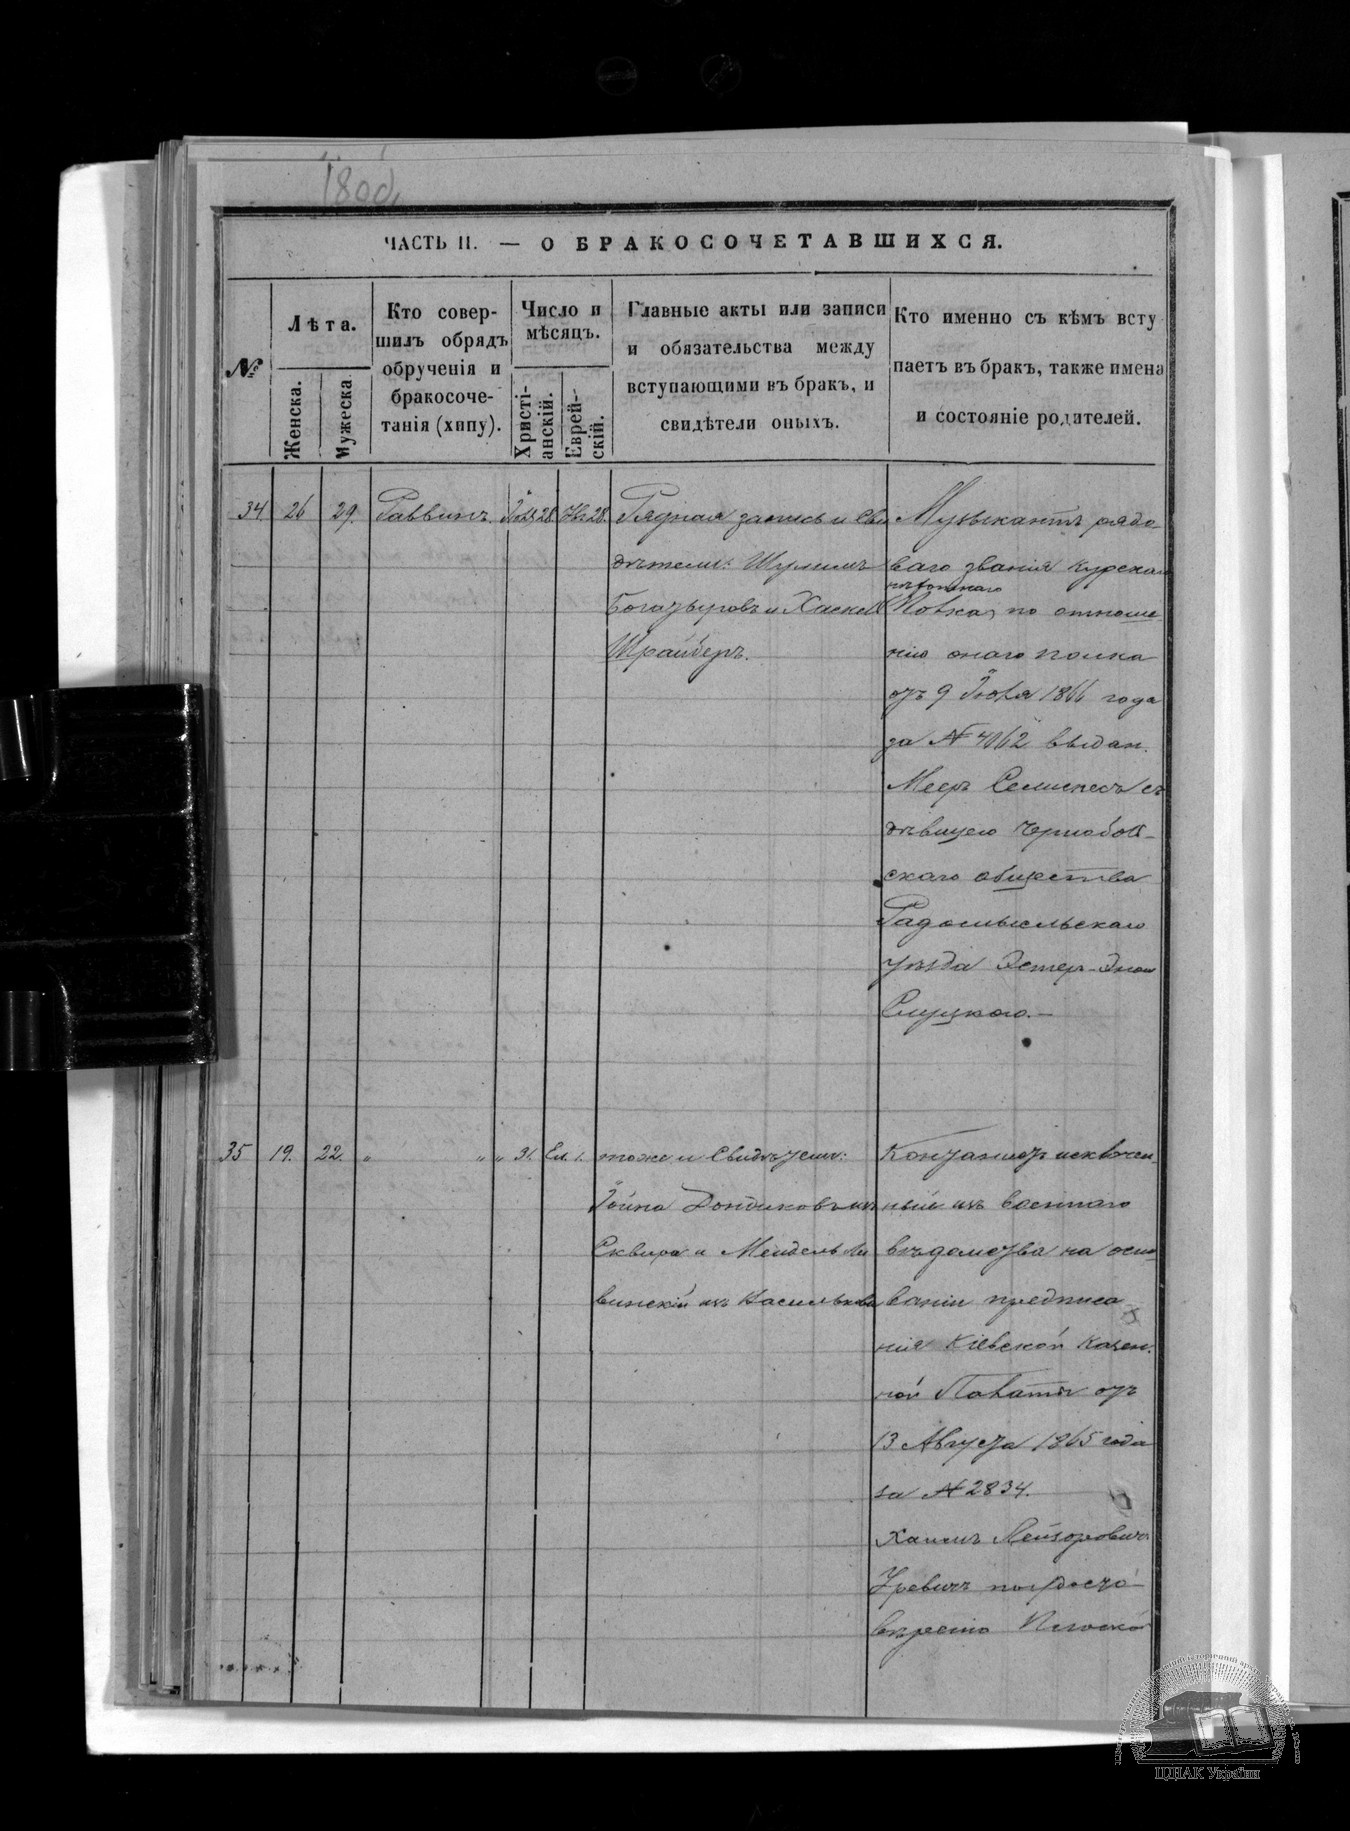 1800
ЧАСТЬ II. — О БРАКОСОЧЕТАВШИХСЯ.
№
Лѣта.
Женска.
Мужеска
Кто совер-
шилъ обрядъ
обрученія и
бракосоче-
танія (хипу).
Число и
мѣсяцъ.
Христі-
анскій.
Еврей-
скій.
Главные акты или записи
и обязательства между
вступающими въ бракъ, и
свидѣтели оныхъ.
Кто именно съ кѣмъ всту
паетъ въ бракъ, также имена
и состояніе родителей.
34 26 29. Раввинъ. 28 28.
Рядная запись и Сви
дѣтели: Шулимъ
Богатыровъ и Хаскел
Шрайберъ.
Музыкантъ рядо-
ваго званія Курскаго
пѣхотнаго
Полка, по отноше
нію онаго полка
отъ 9 Іюля 1866 года
за № 4062 выдан.
Мееръ съ
дѣвицею Чернобыл-
скаго общества
Радомысльскаго
уѣзда Эстеръ
Слуцкого.—
35 19. 22. „ „ „ 31. Ел. 1.
тоже и Свидѣтели:
Іойна изъ
Сквира и Мендель Ли
винскій изъ Василькова
Кантонистъ исключен-
ный изъ военнаго
вѣдомства на осно-
ваніи предписа
нія Кіевской Казен.
ной Палаты отъ
13 Августа 1865 года
за № 2834.
Хаимъ Лейзоровичъ
Гуревичъ по
ЦДІАК України